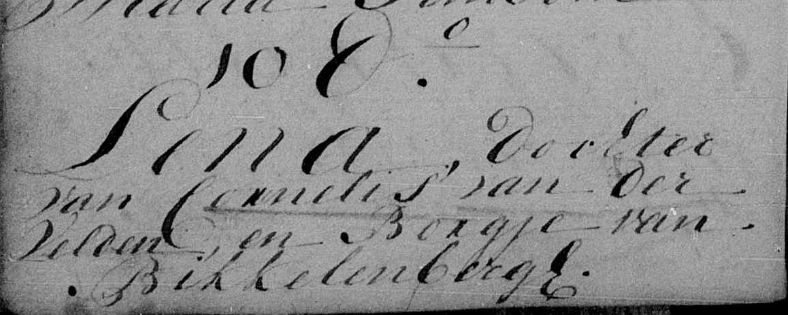 Maria
10 8.º
Lena, Dochter
van Cornelis van Der
Velden, en Borgje van
Bikkelenberg.